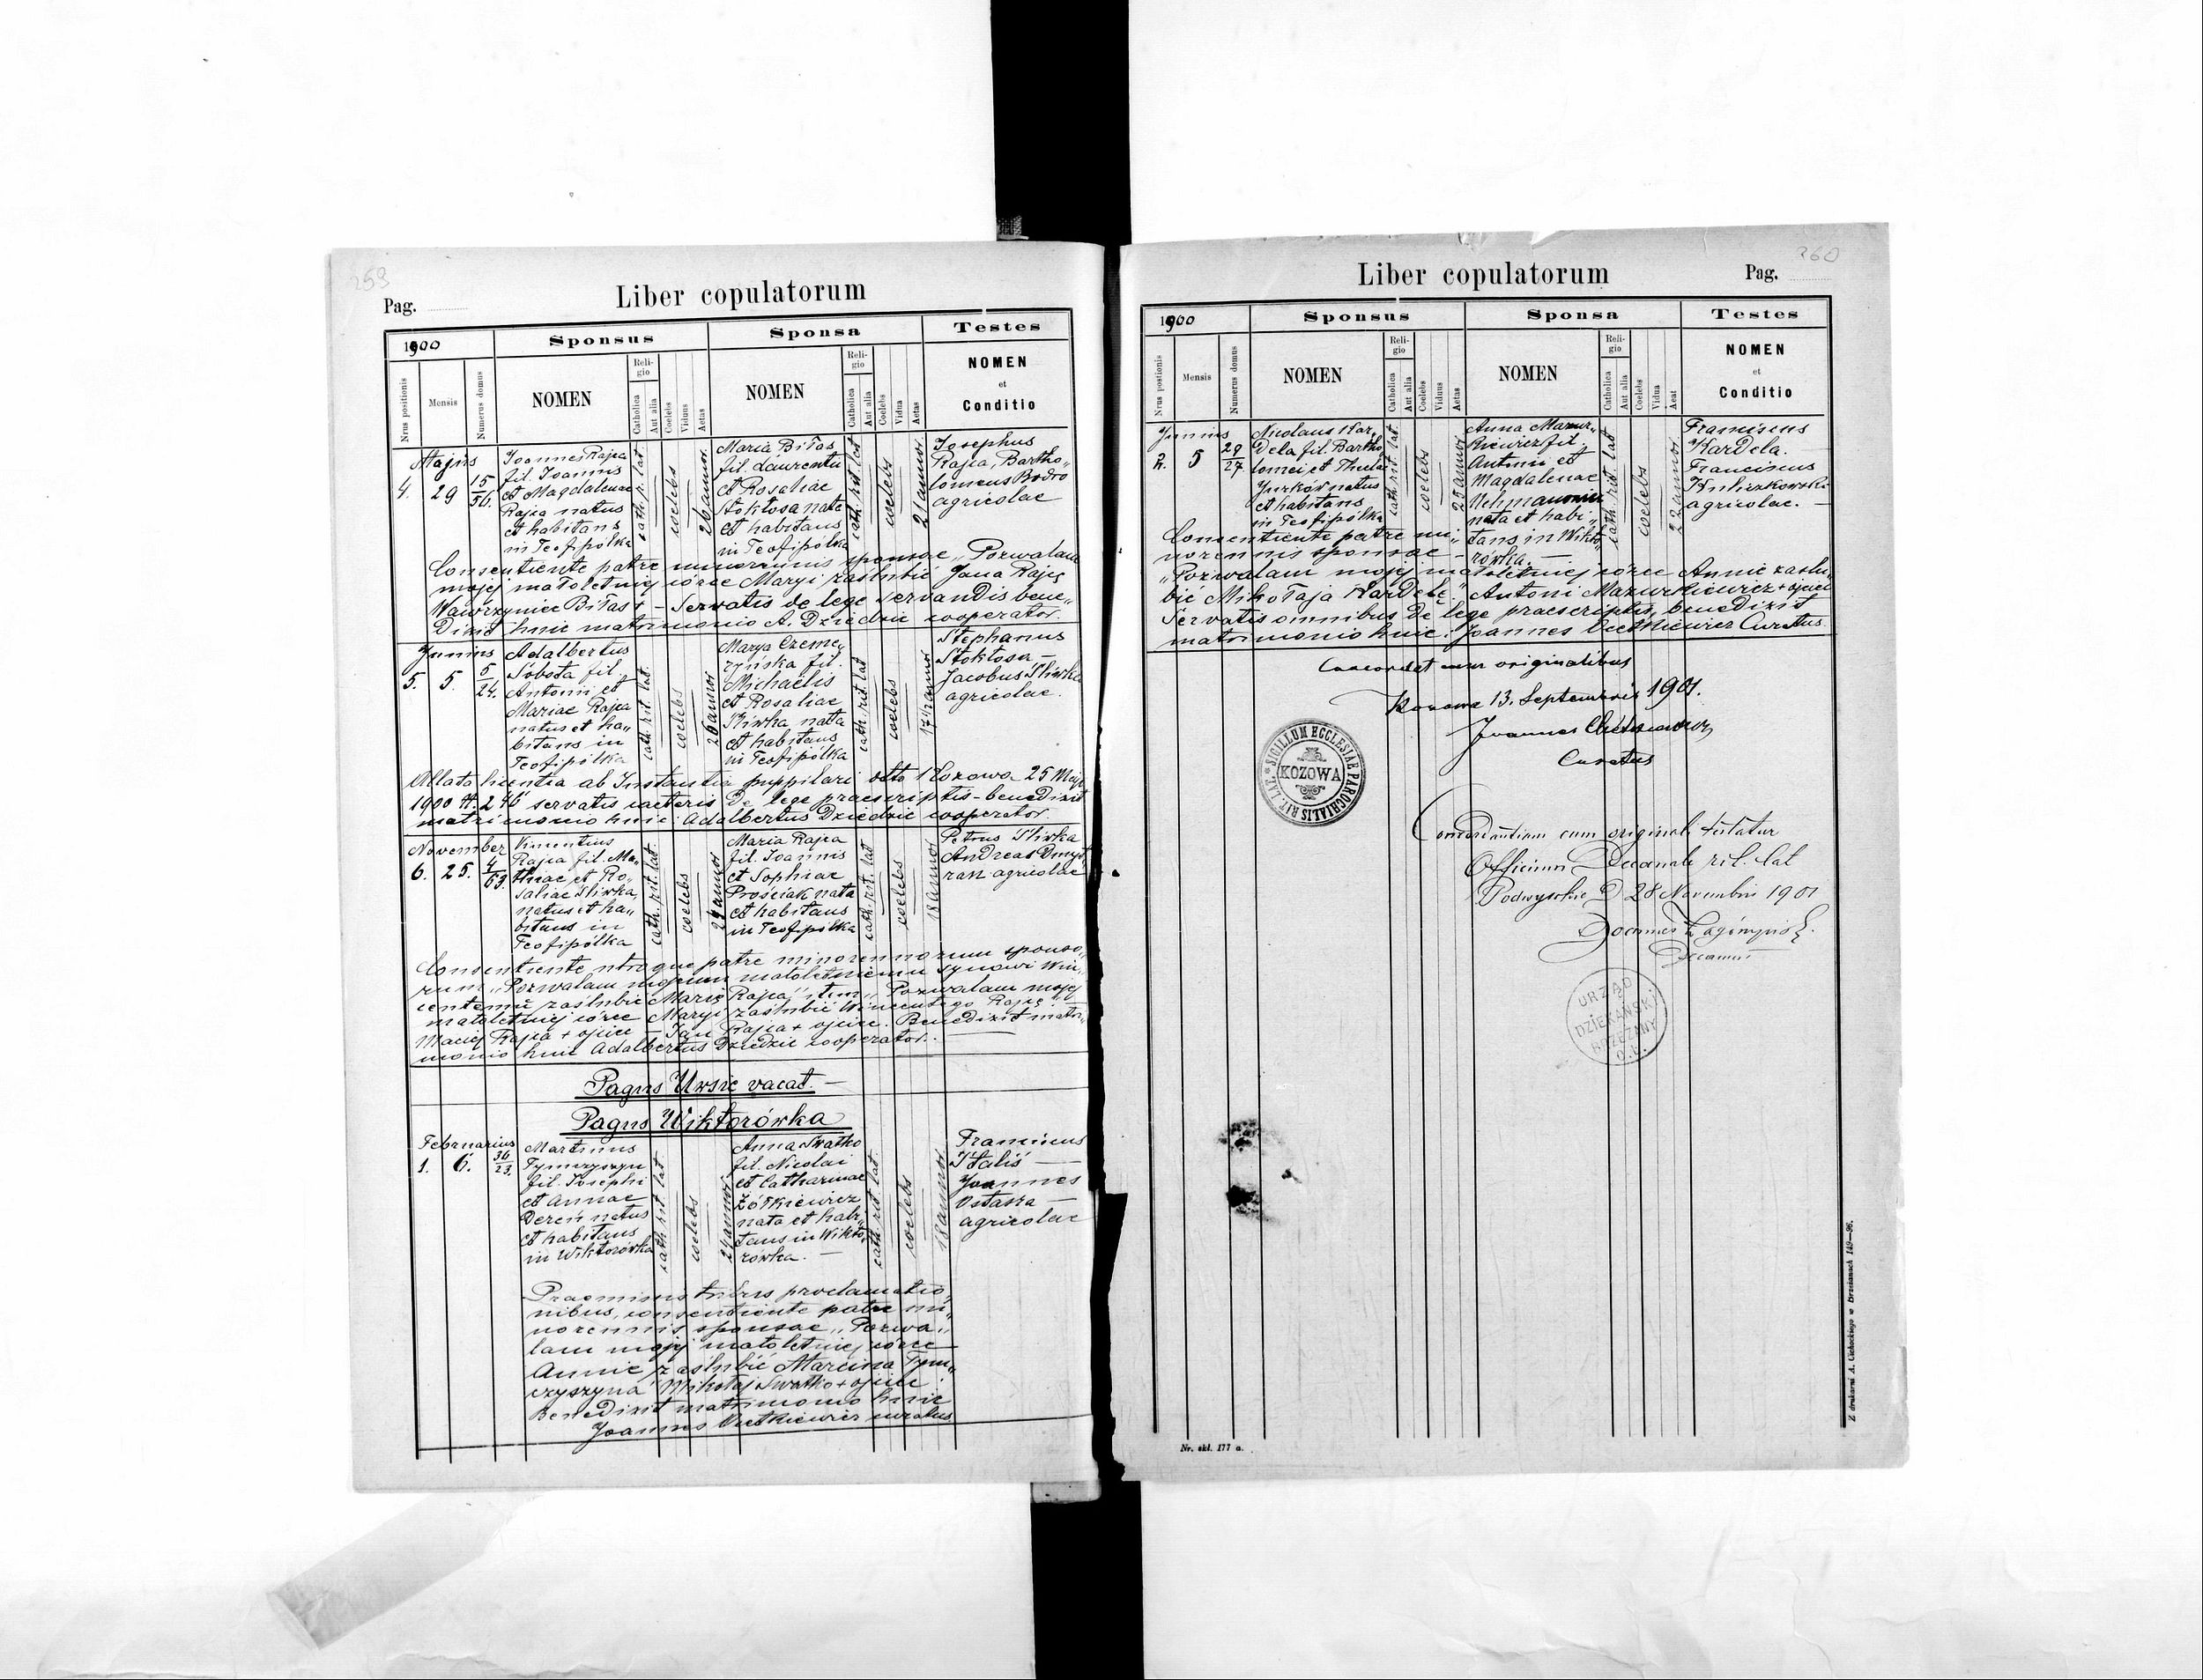 259
Pag.
Liber copulatorum
1900
Sponsus
Sponsa
Testes
Nrus positionis
Mensis
Numerus domus
NOMEN
Religio
Catholica
Aut alia
Coelebs
Viduus
Aetas
NOMEN
Religio
Catholica
Aut alia
Coelebs
Vidua
Aetas
NOMEN
et
Conditio
Majus
4. 29 15/56.
Joannes Rajca
fil. Joannis
et Magdalenae
Rajca natus
et habitans
in Teofipólka
cath. r. lat.
coelebs
26 annor.
Maria Biłas
fil. Laurentii
et Rosaliae
Stokłosa nata
et habitans
in Teofipólka
cath. rit lat
coelebs
21 annor.
Josephus
Rajca, Bartho„
lomeus Bodro
agricolae
Consentiente patre minorennis sponsae „Pozwalam
mojej małoletniej córce Maryi zaślubić Jana Rajcę
Wawrzyniec Biłas + – Servatis de lege servandis bene„
dixit huic matrimonio A. Dziedzic cooperator.
Junius
5. 5. 5/24.
Adalbertus
Sobota fil.
Antonii et
Mariae Rajca
natus et ha„
bitans in
Teofipólka
cath. rit. lat.
coelebs
26 annor
Marya Czeme„
ryńska fil.
Michaelis
et Rosaliae
Śliwka nata
et habitans
in Teofipólka
cath. rit. lat
coelebs
17½ annor
Stephanus
Stokłosa –
Jacobus Śliwka
agricolae.
Allata licentia ab Instantia puppilari dtto Kozowa 25 Maji
1900 N. 246 servatis caeteris de lege praescriptis – benedixit
matrimonio huic: Adalbertus Dziedzic cooperator.
November
6. 25. 4/63.
Vincentius
Rajca fil. Ma„
thiae et Ro„
saliae Śliwka,
natus et ha„
bitans in
Teofipólka
cath. rit. lat.
coelebs
Maria Rajca
fil. Joannis
et Sophiae
Prościak nata
et habitans
in Teofipólka
cath. rit. lat
coelebs
18 annor
Petrus Śliwka
Andreas Dmyt„
rak agricolae
Consentiente utroque patre minorennorum sponso„
rum „Pozwalam mojemu małoletniemu synowi Win„
centemu zaślubić Maryę Rajca" item „Pozwalam mojej
małoletniej córce Maryi zaślubić Wincentego Rajcę"
Maciej Rajca + ojciec – Jan Rajca + ojciec. Benedixit matri„
monio huic Adalbertus Dziedzic cooperator.
Pagus Ursie vacat. –
Pagus Wiktorówka
Februarius
1. 6. 36/23.
Martinus
Tymczyszyn
fil. Josephi
et Annae
Dereń natus
et habitans
in Wiktorówka
cath. rit lat
coelebs
24 annor
Anna Swatko
fil. Nicolai
et Catharinae
Żółkiewicz
nata et habi„
tans in Wikto„
rówka. –
cath. rit lat.
coelebs
18 annor
Franciscus
Joannes
Ostaska –
agricolae
Praemissis tribus proclamatio„
nibus, consentiente patre mi„
norennis sponsae „Pozwa„
lam mojej małoletniej córce
Annie zaślubić Marcina Tym„
czyszyna" Mikołaj Swatko + ojciec.
Benedixit matrimonio huic
Joannes curatus
260
Liber copulatorum
Pag.
1900
Sponsus
Sponsa
Testes
Nrus postionis
Mensis
Numerus domus
NOMEN
Religio
Catholica
Aut alia
Coelebs
Viduus
Aetas
NOMEN
Religio
Catholica
Aut alia
Coelebs
Vidua
Aeat
NOMEN
et
Conditio
Junius
2. 5 29/27.
Nicolaus Kar„
dela fil. Bartho„
lomei et Theclae
Jurków natus
et habitans
in Teofipólka
cath. rit. lat
coelebs
25 annor
Anna Mazur„
kiewicz fil.
Antoni et
Magdalenae
nata et habi„
tans in Wikto„
rówka. –
cath. rit. lat
coelebs
22 annor.
Franciscus
Kardela.
Franciscus
Kuliczkowski
agricolae. –
Consentiente patre mi„
norennis sponsae –
„Pozwalam mojej małoletniej córce Annie zaślu„
bić Mikołaja Kardelę." Antoni Mazurkiewicz + ojciec
Servatis omnibus de lege praescriptis, benedixit
matrimonio huic: Joannes Curatus.
Concordat cum originalibus
Kozowa 13. Septembris 1901.
Joannes
Curatus
SIGILLUM ECCLESIAE PAROCHIALIS RIT. LAT.
KOZOWA
Concordantiam cum originali testatur
Officium Decanale rit. lat
Podwysokie D 28 Novembris 1901
Decanus
URZĄD
DZIEKAŃSKI
BRZEŻANY
O. Ł.
Nr. skl. 177 a.
Z drukarni A. Cichockiego w Brzeżanach 149—96.